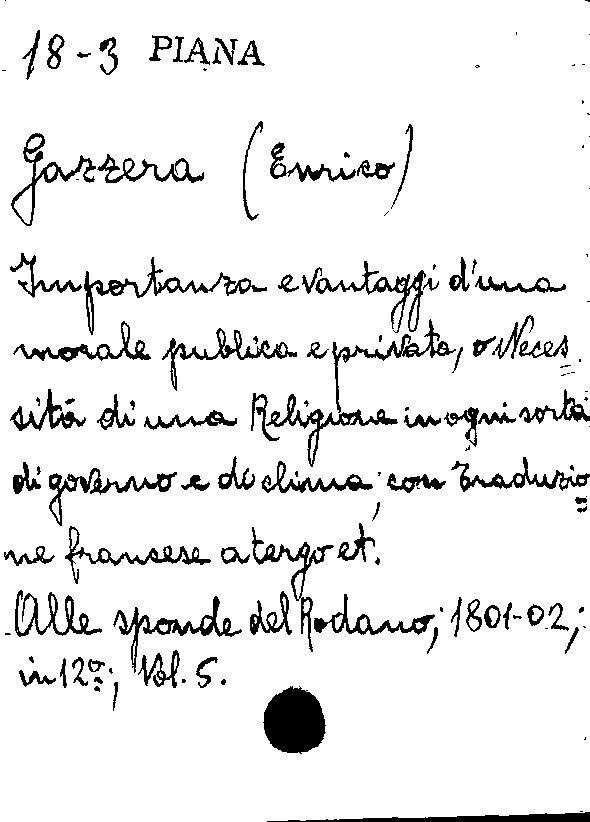 18-3 PIANA
Gazzera (Enrico)
Importanza e vantaggi d'una
morale publica e privata, o Neces=
sità di una Religione in ogni sorta
di governo e di clima; con traduzio=
ne francese a tergo et.
Alle sponde del Rodano; 1801-02;
in 12º; Vol. 5.